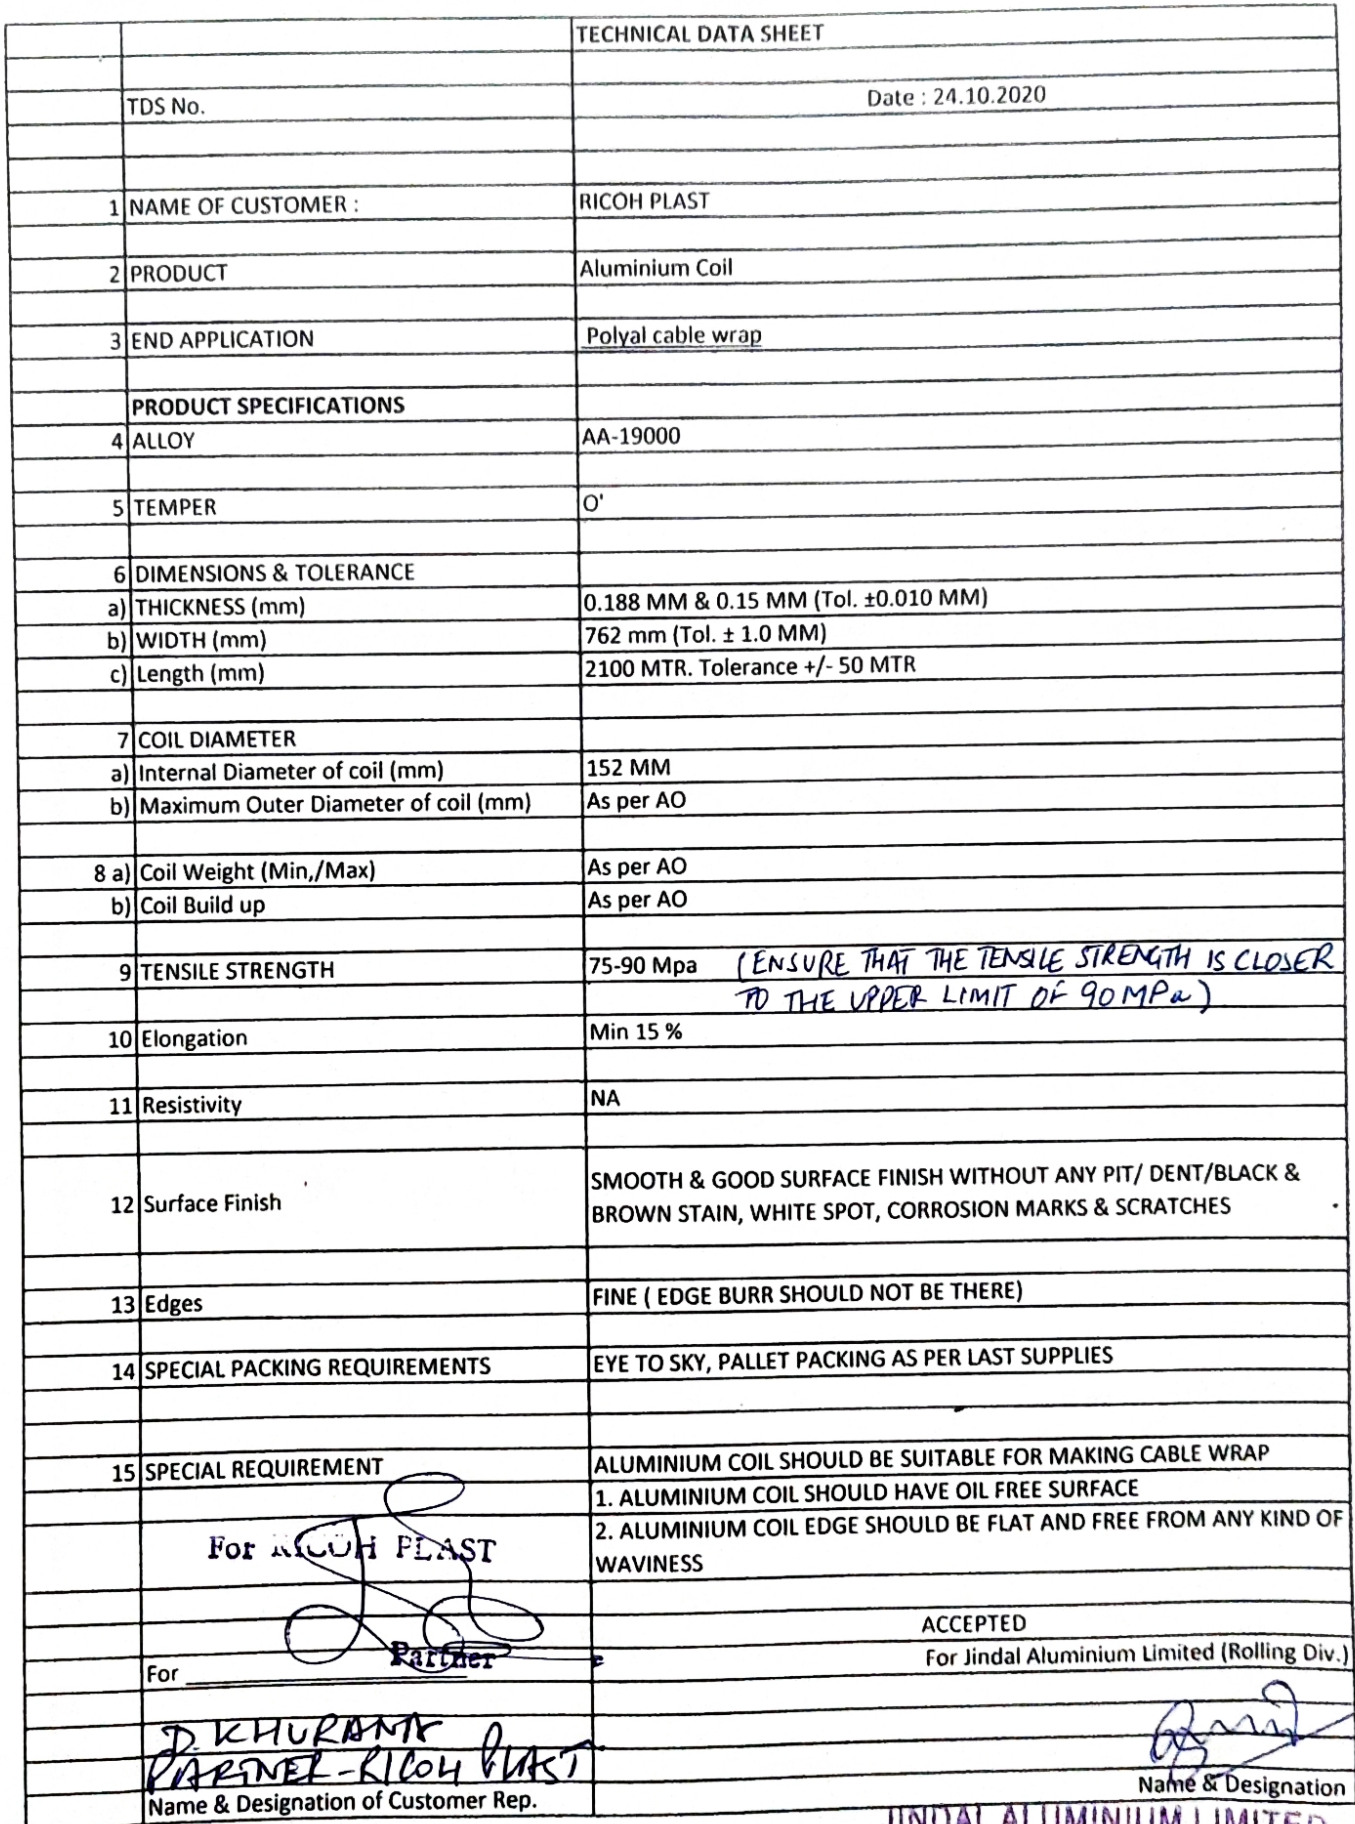 TECHNICAL DATA SHEET
TDS No. Date : 24.10.2020
1 NAME OF CUSTOMER : RICOH PLAST
2 PRODUCT Aluminium Coil
3 END APPLICATION Polyal cable wrap
PRODUCT SPECIFICATIONS
4 ALLOY AA-19000
5 TEMPER O'
6 DIMENSIONS & TOLERANCE
a) THICKNESS (mm) 0.188 MM & 0.15 MM (Tol. ±0.010 MM)
b) WIDTH (mm) 762 mm (Tol. ± 1.0 MM)
c) Length (mm) 2100 MTR. Tolerance +/- 50 MTR
7 COIL DIAMETER
a) Internal Diameter of coil (mm) 152 MM
b) Maximum Outer Diameter of coil (mm) As per AO
8 a) Coil Weight (Min,/Max) As per AO
b) Coil Build up As per AO
9 TENSILE STRENGTH 75-90 Mpa (ENSURE THAT THE TENSILE STRENGTH IS CLOSER
TO THE UPPER LIMIT OF 90 MPa)
10 Elongation Min 15 %
11 Resistivity NA
12 Surface Finish SMOOTH & GOOD SURFACE FINISH WITHOUT ANY PIT/ DENT/BLACK &
BROWN STAIN, WHITE SPOT, CORROSION MARKS & SCRATCHES
13 Edges FINE ( EDGE BURR SHOULD NOT BE THERE)
14 SPECIAL PACKING REQUIREMENTS EYE TO SKY, PALLET PACKING AS PER LAST SUPPLIES
15 SPECIAL REQUIREMENT ALUMINIUM COIL SHOULD BE SUITABLE FOR MAKING CABLE WRAP
1. ALUMINIUM COIL SHOULD HAVE OIL FREE SURFACE
2. ALUMINIUM COIL EDGE SHOULD BE FLAT AND FREE FROM ANY KIND OF
WAVINESS
For RICOH PLAST
Partner
For
ACCEPTED
For Jindal Aluminium Limited (Rolling Div.)
D. KHURANA
PARTNER-RICOH PLAST
Name & Designation of Customer Rep.
Name & Designation
JINDAL ALUMINIUM LIMITED